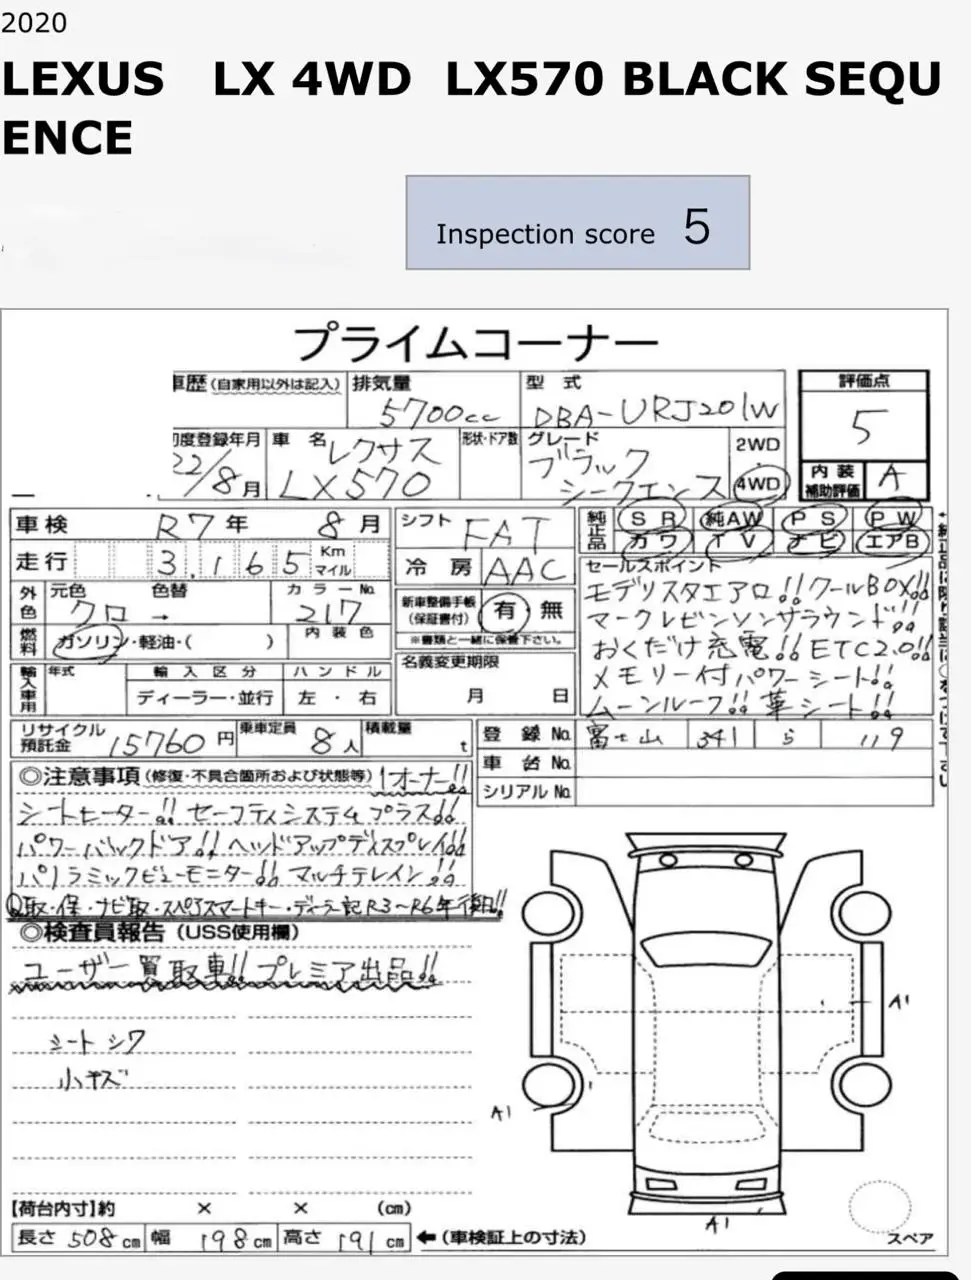 2020
LEXUS LX 4WD LX570 BLACK SEQU
ENCE
Inspection score 5
プライムコーナー
車歴(自家用以外は記入) 排気量 型式 評価点
5700cc DBA-URJ201W 5
初度登録年月 車名 形状・ドア数 グレード 2WD
22/8月 レクサス LX570 ブラック シークエンス 4WD
内装補助評価 A
車検 R7年 8月 シフト FAT 純正品 SR 純AW PS PW
カワ TV ナビ エアB
走行 3,165 Km マイル 冷房 AAC
セールスポイント
外色 元色 色替 カラーNo.
クロ → 217
新車整備手帳(保証書付) 有 無
※書類と一緒に保管下さい。
モデリスタエアロ!! クールBOX!!
マークレビンソンサラウンド!!
おくだけ充電!! ETC2.0!!
メモリー付パワーシート!!
ムーンルーフ!! 革シート!!
燃料 ガソリン・軽油・( ) 内装色
輸入車用 年式 輸入区分 ハンドル
ディーラー・並行 左・右
名義変更期限
月 日
リサイクル預託金 15760円 乗車定員 8人 積載量 t
登録No. 富士山 341 119
車台No.
シリアルNo.
◎注意事項(修復・不具合箇所および状態等) 1オーナー!!
シートヒーター!! セーフティシステムプラス!!
パワーバックドア!! ヘッドアップディスプレイ!!
パノラミックビューモニター!! マルチテレイン!!
取・保・ナビ取・スペアスマートキー・ディーラー記R3〜R6年後日!!
◎検査員報告(USS使用欄)
ユーザー買取車!! プレミア出品!!
シートシワ
小キズ
A1
A1
A1
【荷台内寸】約 × × (cm)
長さ 508cm 幅 198cm 高さ 191cm ←(車検証上の寸法)
スペア